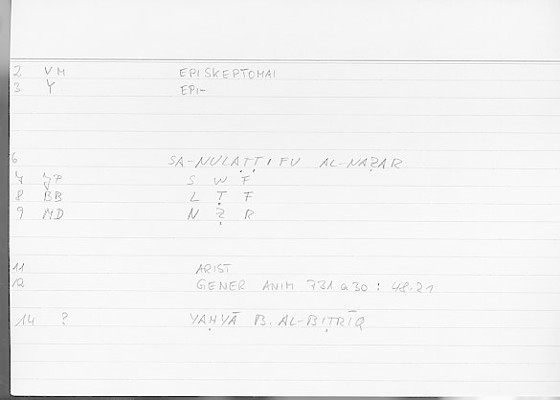 2 VM EPISKEPTOMAI
3 Y EPI-
6 SA-NULAṬṬIFU AL-NAẒAR
7 JP S W F
8 BB L Ṭ F
9 MD N Ẓ R
11 ARIST
12 GENER ANIM 731 a 30 : 48.21
14 ? YAḤYĀ B. AL-BIṬRĪQ